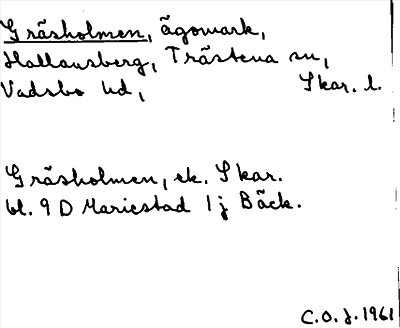 Gräsholmen, ägomark,
Hallansberg, Trästena sn,
Vadsbo hd, Skar. l.
Gräsholmen, ek. Skar.
bl. 9 D Mariestad 1 j Bäck.
C.O.J. 1961